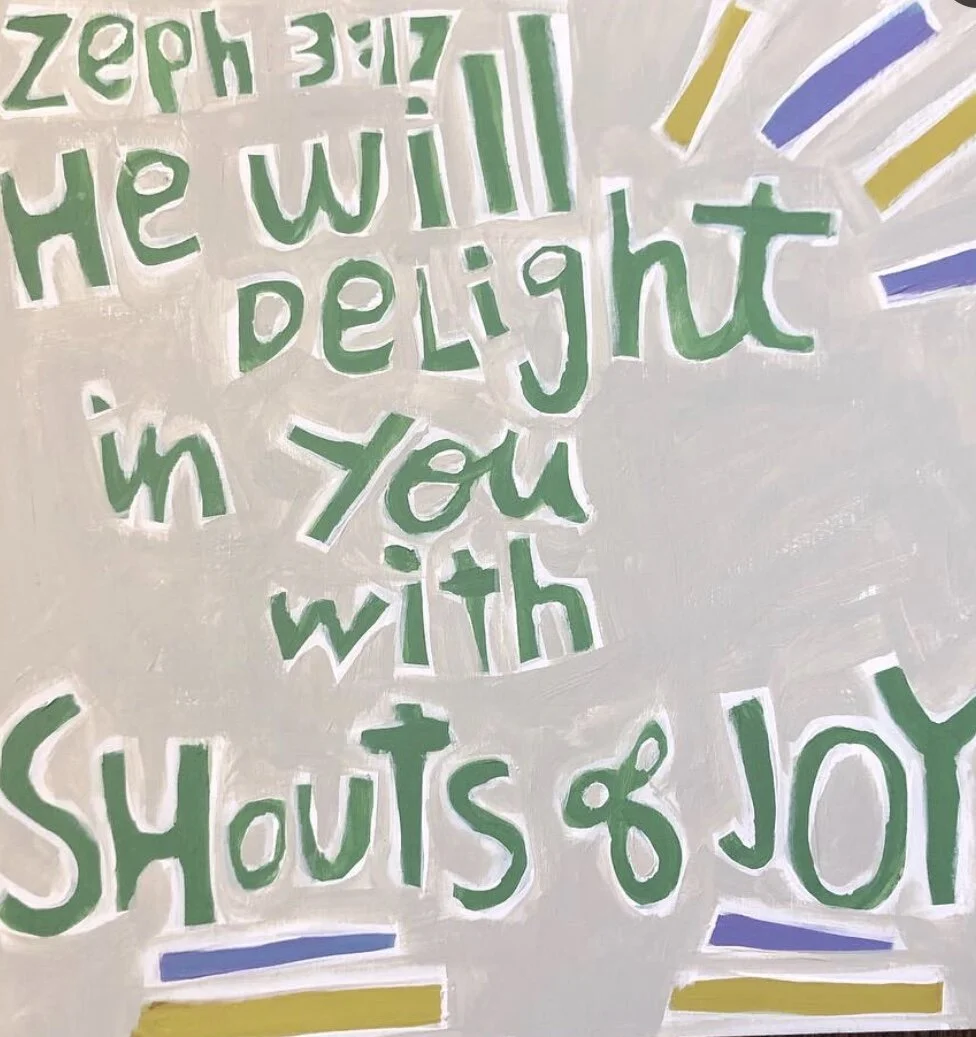 Zeph 3:17
He will
DeLight
in You
with
SHouTS of JOY